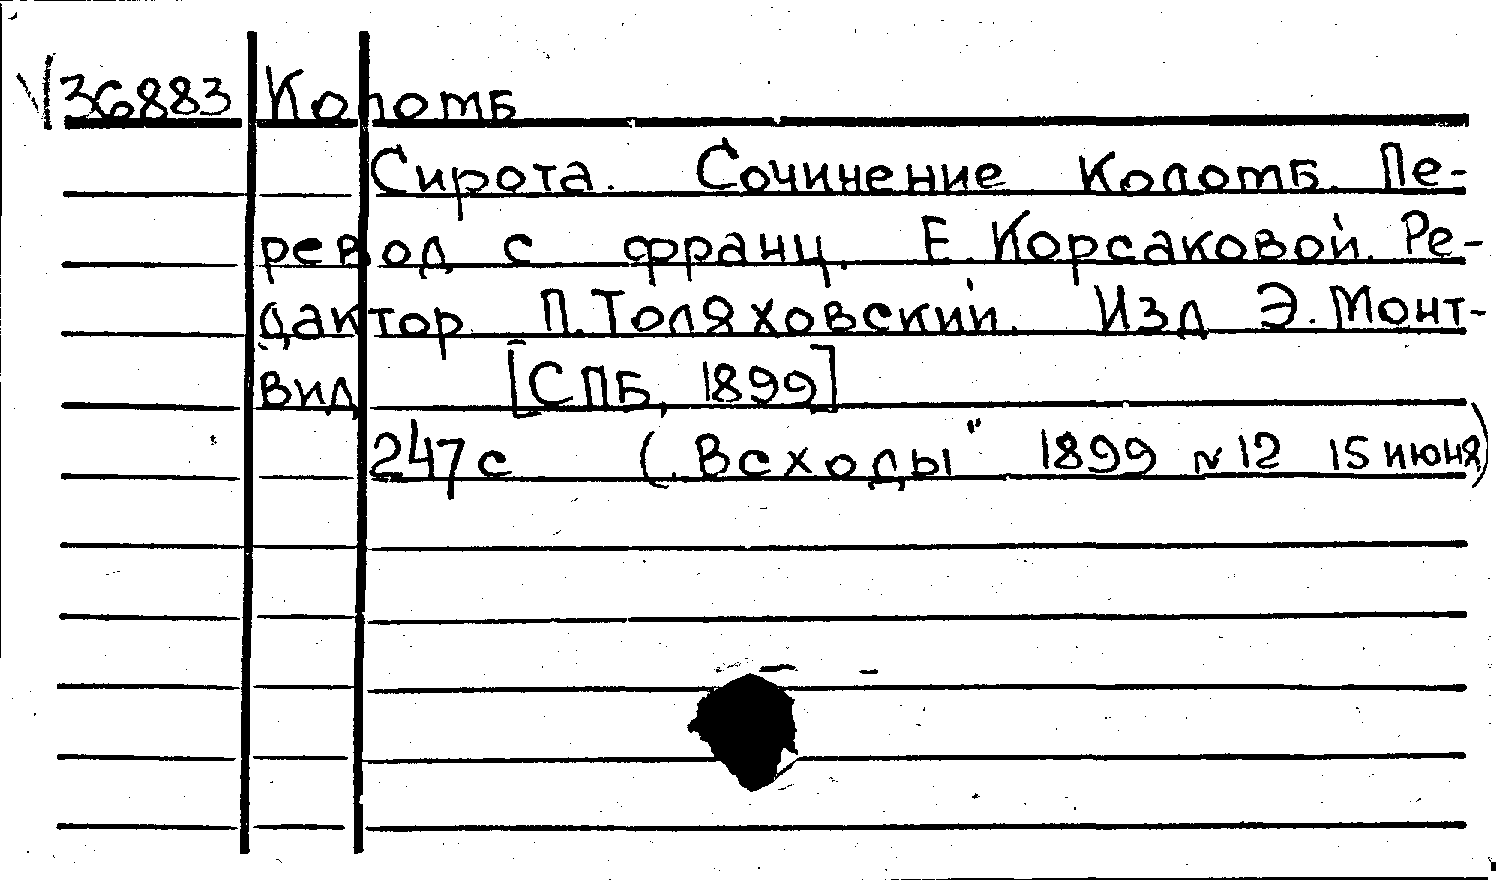 √36883 Коломб
Сирота. Сочинение Коломб. Пе-
ревод с франц. Е. Корсаковой. Ре-
дактор П. Толяховский. Изд Э. Монт-
вид [СПБ, 1899]
247 с („Всходы" 1899 № 12 15 июня)